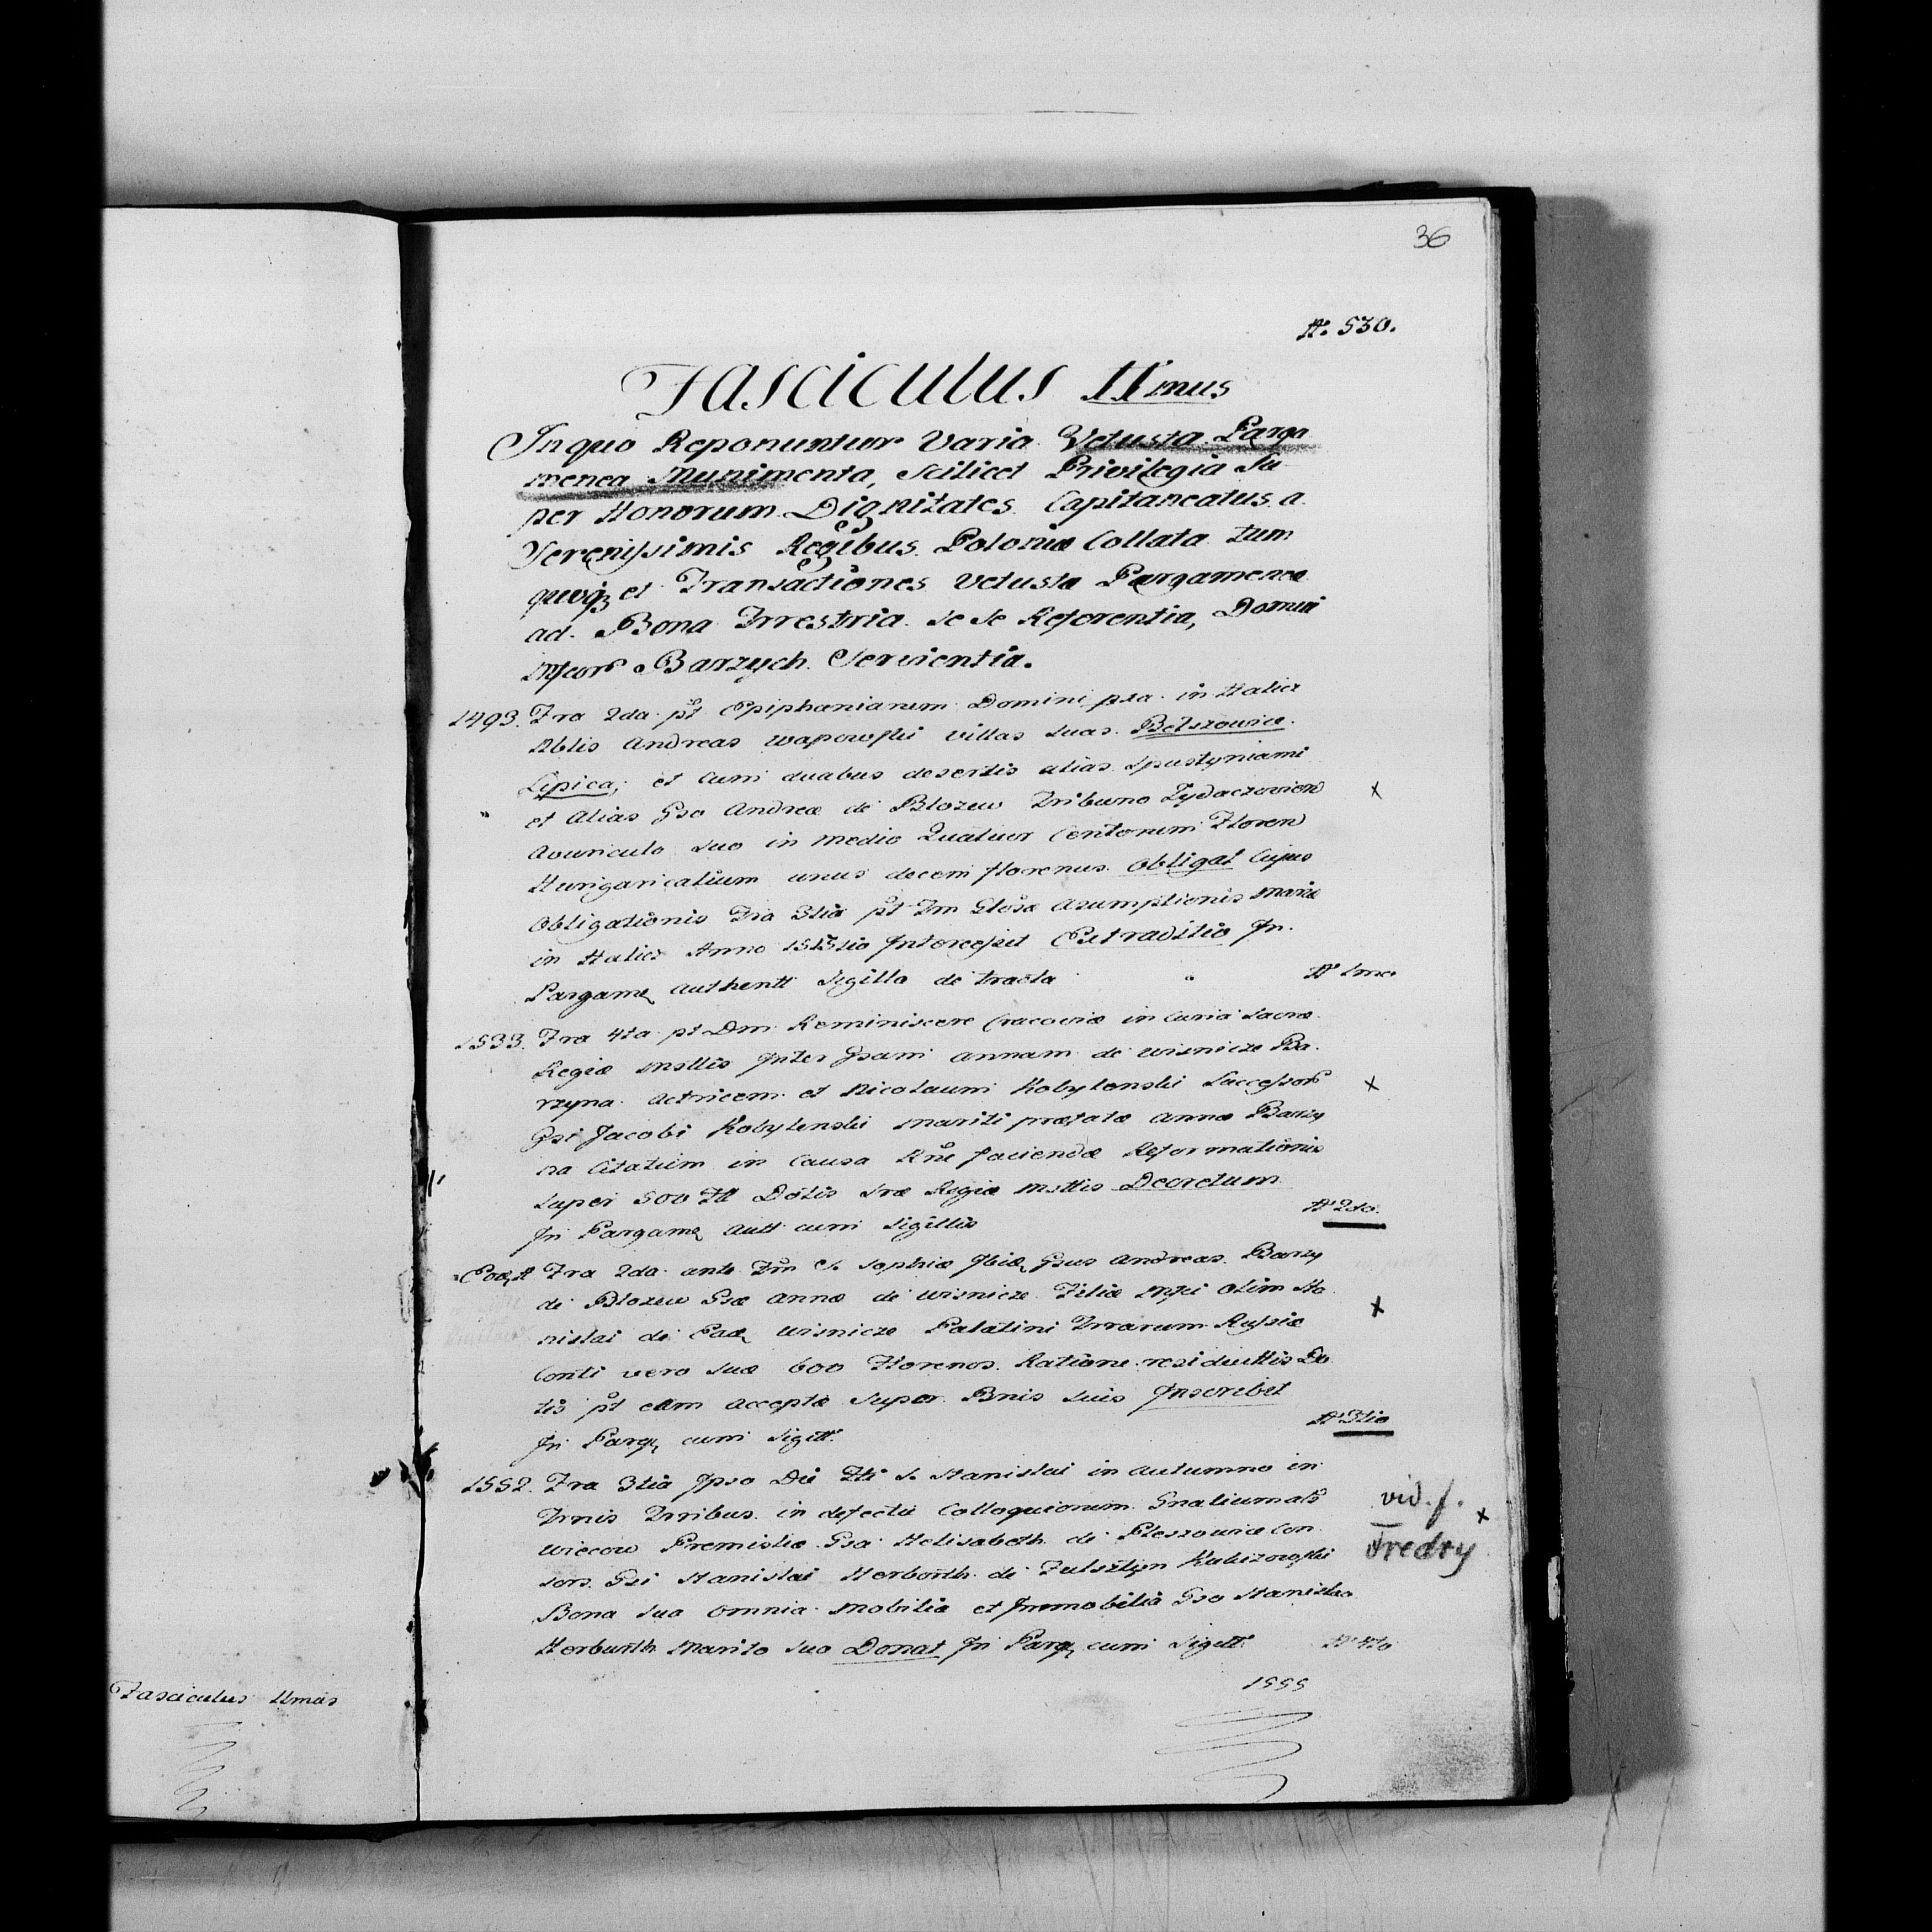 36
N. 530.
Fasciculus IImus
In quo Reponuntur Varia Vetusta Parga
menea Munimenta, Scilicet Privilegia Su
per Honorum Dignitates Capitaneatus a
Serenissimis Regibus Poloniæ Collata tum
quoqȝ et Transactiones Vetustæ Pargameneæ
ad Bona Trrestria se se Referentia, Domui
Mfcorᵒ Barzych Servientia.
1493. Fra 2da pt Epiphaniarum Domini pta in Halicz
Nblis Andreas Wapowski villas suas Betszowice
Lipica, et cum duabus desertis alias Spustyniami
et alias Gso Andreæ de Blozew Tribuno Zydaczovien
Avunculo suo in medio Quatuor Centorum Floren
Hungaricalium unus decem florenus Obligat Cujus
Obligationis Fra 3tia pt Fm Gloſæ Asumptionis Mariæ
in Halicz Anno 1513tio Intercessit Extraditio In
Pargame authentt Sigillo de tracta
Nº 1mo
1533. Fra 4ta pt Dm Reminiscere Cracoviæ in Curia Sacræ
Regiæ Mttis Inter Gsam Annam de Wisnicze Ba
rzyna Actricem et Nicolaum Kobylenski Successorᵒ
Gsi Jacobi Kobylenski Mariti præfatæ Annæ Barzy
na Citatum in Causa Rne faciendæ Reformationis
super 500 Fl Dotis Sræ Regiæ Mttis Decretum
In Pargame autt cum Sigillis
Nº 2do.
Eod. A Fra 2da ante Fm S. Sophiæ Gsus Andreas Barzy
de Blozew Gsæ Annæ de Wisnicze Filiæ Mfci olim Sta
nislai de Ead Wisnicze Palatini Trrarum Russiæ
Conti vero suæ 600 Florenos Ratione residuittis Do
tis pt eam acceptæ super Bnis suis Inscribit
In Parg cum Sigitt.
Nº 3tio
1552. Fra 3tia Ipso Die Fti S. Stanislai in Autumno in
Trmis Trribus in defectu Colloquiorum Gnalium als
wiecow Premisliæ Gsa Helisabeth de Pleszowice Con
sors Gsi Stanislai Herborth de Fulsztyn
Bona sua omnia Mobilia et Immobilia Gso Stanislao
Herburth Marito suo Donat In Parg cum Sigitt
Nº 4to
vid. f.
Fredry
1555
Fasciculus IImus